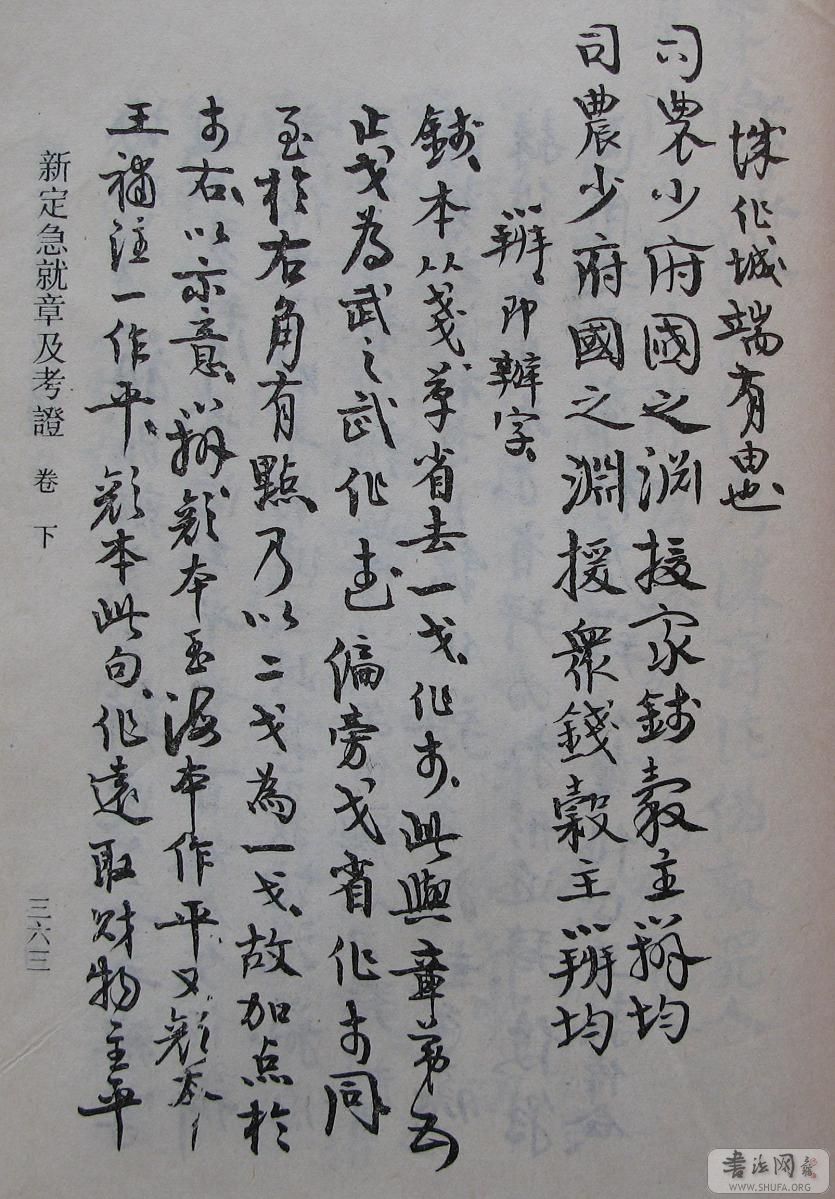 作城端有由也
司農少府國之淵援眾錢穀主辧均
司農少府國之淵援眾錢穀主辧均
辧即辦字
錢本从戔草省去一戈作此與章第五
止戈為武之武作偏旁戈省作同
至於右角有點乃以二戈為一戈故加点於
右以示意辧顏本玉海本作平又顏本
王補注一作平顏本此句作遠取財物主平
新定急就章及考證 卷 下
三六三
書法网
WWW.SHUFA.ORG